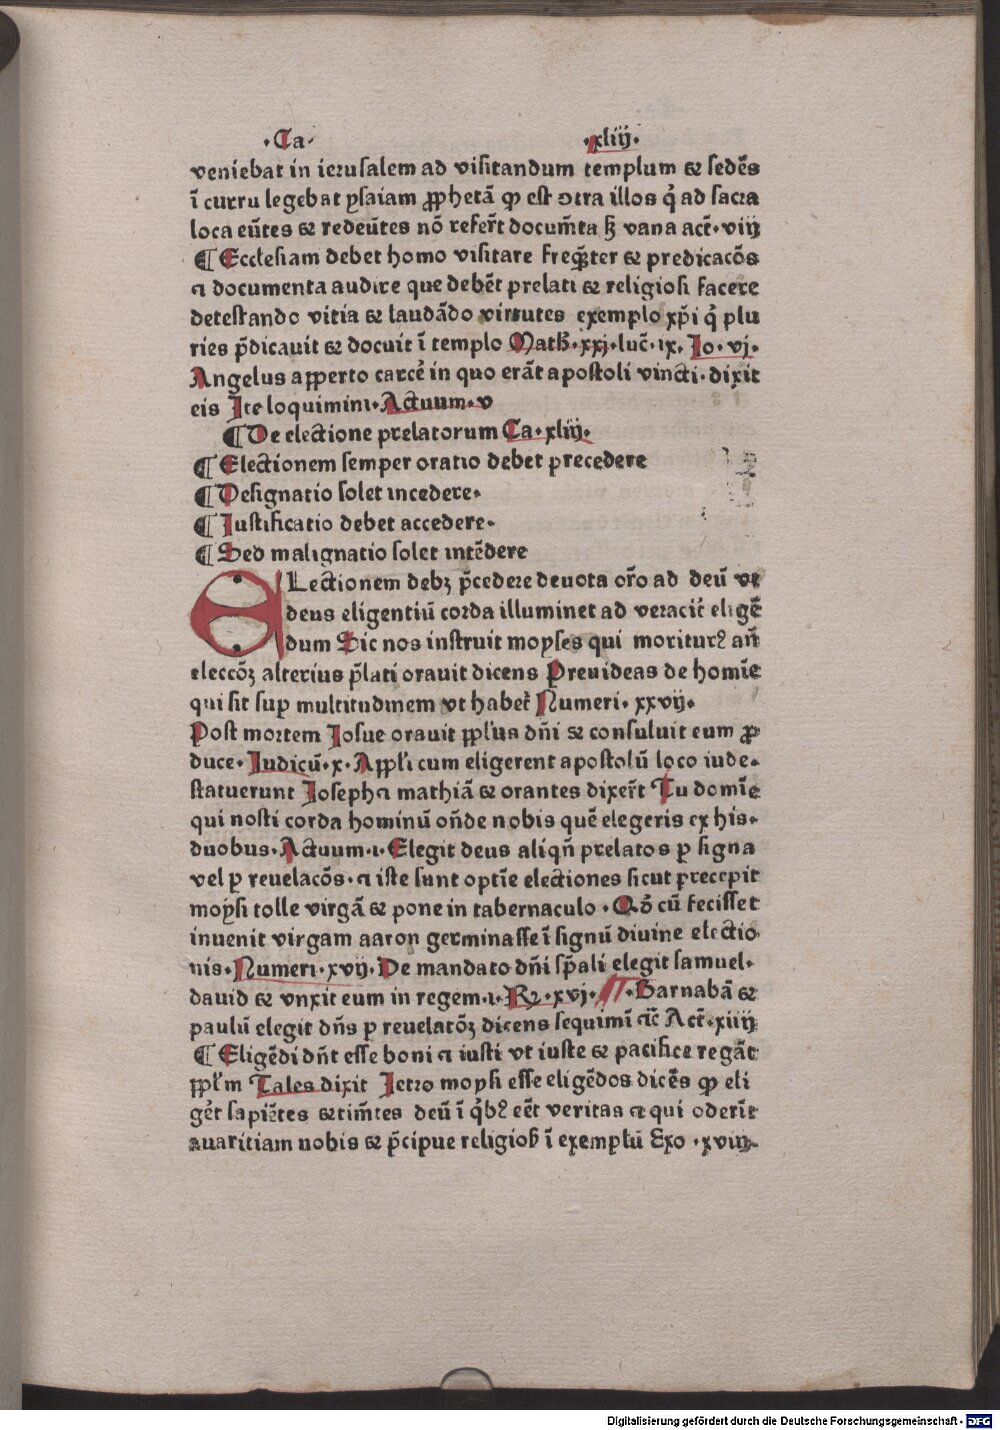 ·Ca· ·xliij·
veniebat in ierusalem ad visitandum templum ⁊ sedēs
ī curru legebat ysaiam ꝓphetā ꝙ est ↄtra illos q̇ ad sacra
loca eūtes ⁊ redeūtes nō refer̄t docum̄ta ẜ vana act̄·viij
¶ Ecclesiam debet homo visitare freq̄ter ⁊ predicacōs
⁊ documenta audire que debēt prelati ⁊ religiosi facere
detestando vitia ⁊ laudādo virtutes exemplo xp̄i q̇ plu
ries p̄dicauit ⁊ docuit ī templo Math̄·xxj·luc̄·ix· Jo·vj·
Angelus apperto carcē in quo erāt apostoli vincti·dixit
eis Ite loquimini·Actuum·v
¶ De electione prelatorum Ca·xliij·
¶ Electionem semper oratio debet precedere
¶ Designatio solet incedere·
¶ Justificatio debet accedere·
¶ Sed malignatio solet intēdere
ELectionem debꝫ p̄cedere deuota or̄o ad deū vt
deus eligentiū corda illuminet ad veracit̄ eligē
dum Sic nos instruit moyses qui moriturꝰ an̄
eleccōꝫ alterius p̄lati orauit dicens Preuideas de homīe
qui sit suꝑ multitudinem vt haber̄ Numeri·xxvij·
Post mortem Josue orauit ꝓpl'us dn̄i ⁊ consuluit eum ꝓ
duce·Judicū·x·Appl'i cum eligerent apostolū loco iude·
statuerunt Joseph ⁊ mathiā ⁊ orantes dixer̄t Tu domīe
qui nosti corda hominū on̄de nobis quē elegeris ex his·
duobus·Actuum·i·Elegit deus aliqn̄ prelatos ꝑ signa
vel ꝑ reuelacōs·⁊ iste sunt optīe electiones sicut precepit
moysi tolle virgā ⁊ pone in tabernaculo·Qō cū fecisset
inuenit virgam aaron germinasse ī signū diuine electio
nis·Numeri·xvij·De mandato dn̄i sp̄ali elegit samuel·
dauid ⁊ vnxit eum in regem·i·Rꝫ·xvj· ¶·Barnabā ⁊
paulū elegit dn̄s ꝑ reuelatōꝫ dicens sequimī ⁊c̄ Act̄·xiiij
¶ Eligēdi dn̄t esse boni ⁊ iusti vt iuste ⁊ pacifice regāt
ꝓpl'm Tales dixit Jetro moysi esse eligēdos dicēs ꝙ eli
gēt sapiētes ⁊ tim̄tes deū ī q̇bꝰ eēt veritas ⁊ qui oderīt
auaritiam nobis ⁊ p̄cipue religioẜ ī exemplū Exo·xviij·
Digitalisierung gefördert durch die Deutsche Forschungsgemeinschaft - DFG